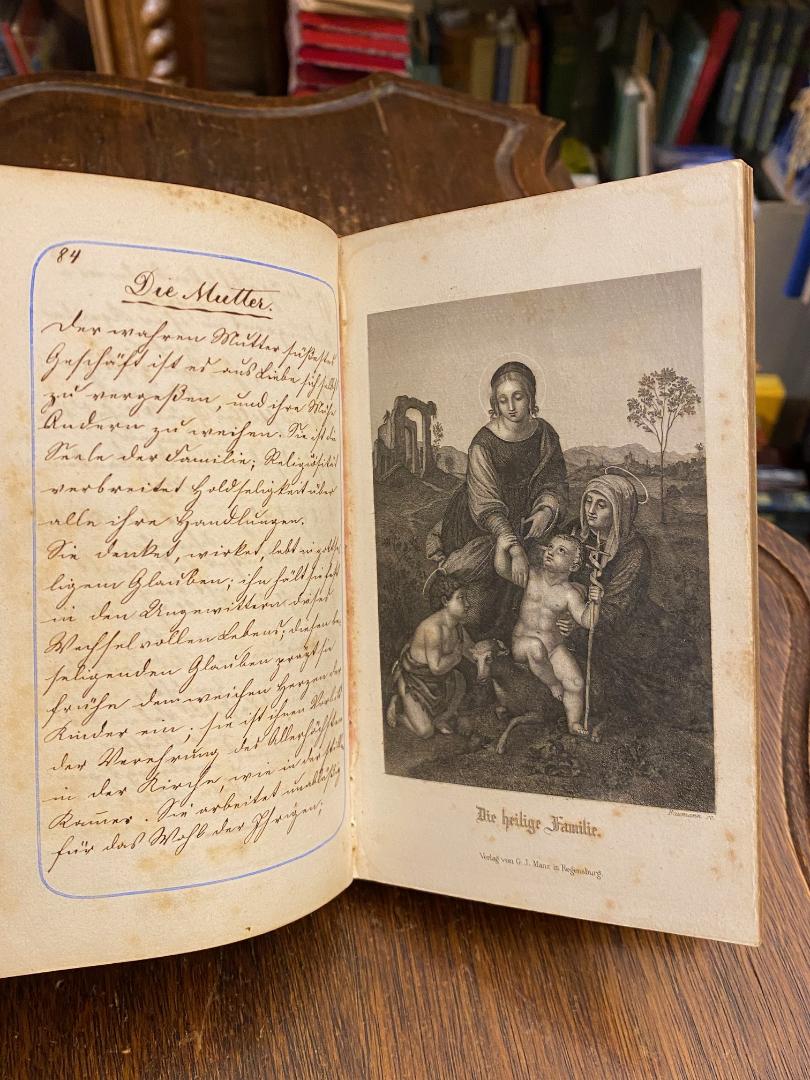 84
Die Mutter.
Der wahren Mutter süßestes
Geschäft ist es aus Liebe sich selbst
zu vergeßen, und ihre Mühe
Andern zu weihen. Sie ist die
Seele der Familie; Religiösität
verbreitet Holdseligkeit über
alle ihre Handlungen.
Sie denket, wirket, lebt in gottse-
ligem Glauben; ihn hält sie fest
in den Ungewittern dieses
Wechselvollen Lebens; diesen be-
seligenden Glauben prägt sie
frühe dem weichen Herzen der
Kinder ein; sie ist ihnen Vorbild
der Verehrung des Allerhöchsten
in der Kirche, wie in der stillen
Kamer. Sie arbeitet unabläßig
für das Wohl der Ihrigen;
Naumann sc.
Die heilige Familie.
Verlag von G. J. Manz in Regensburg.